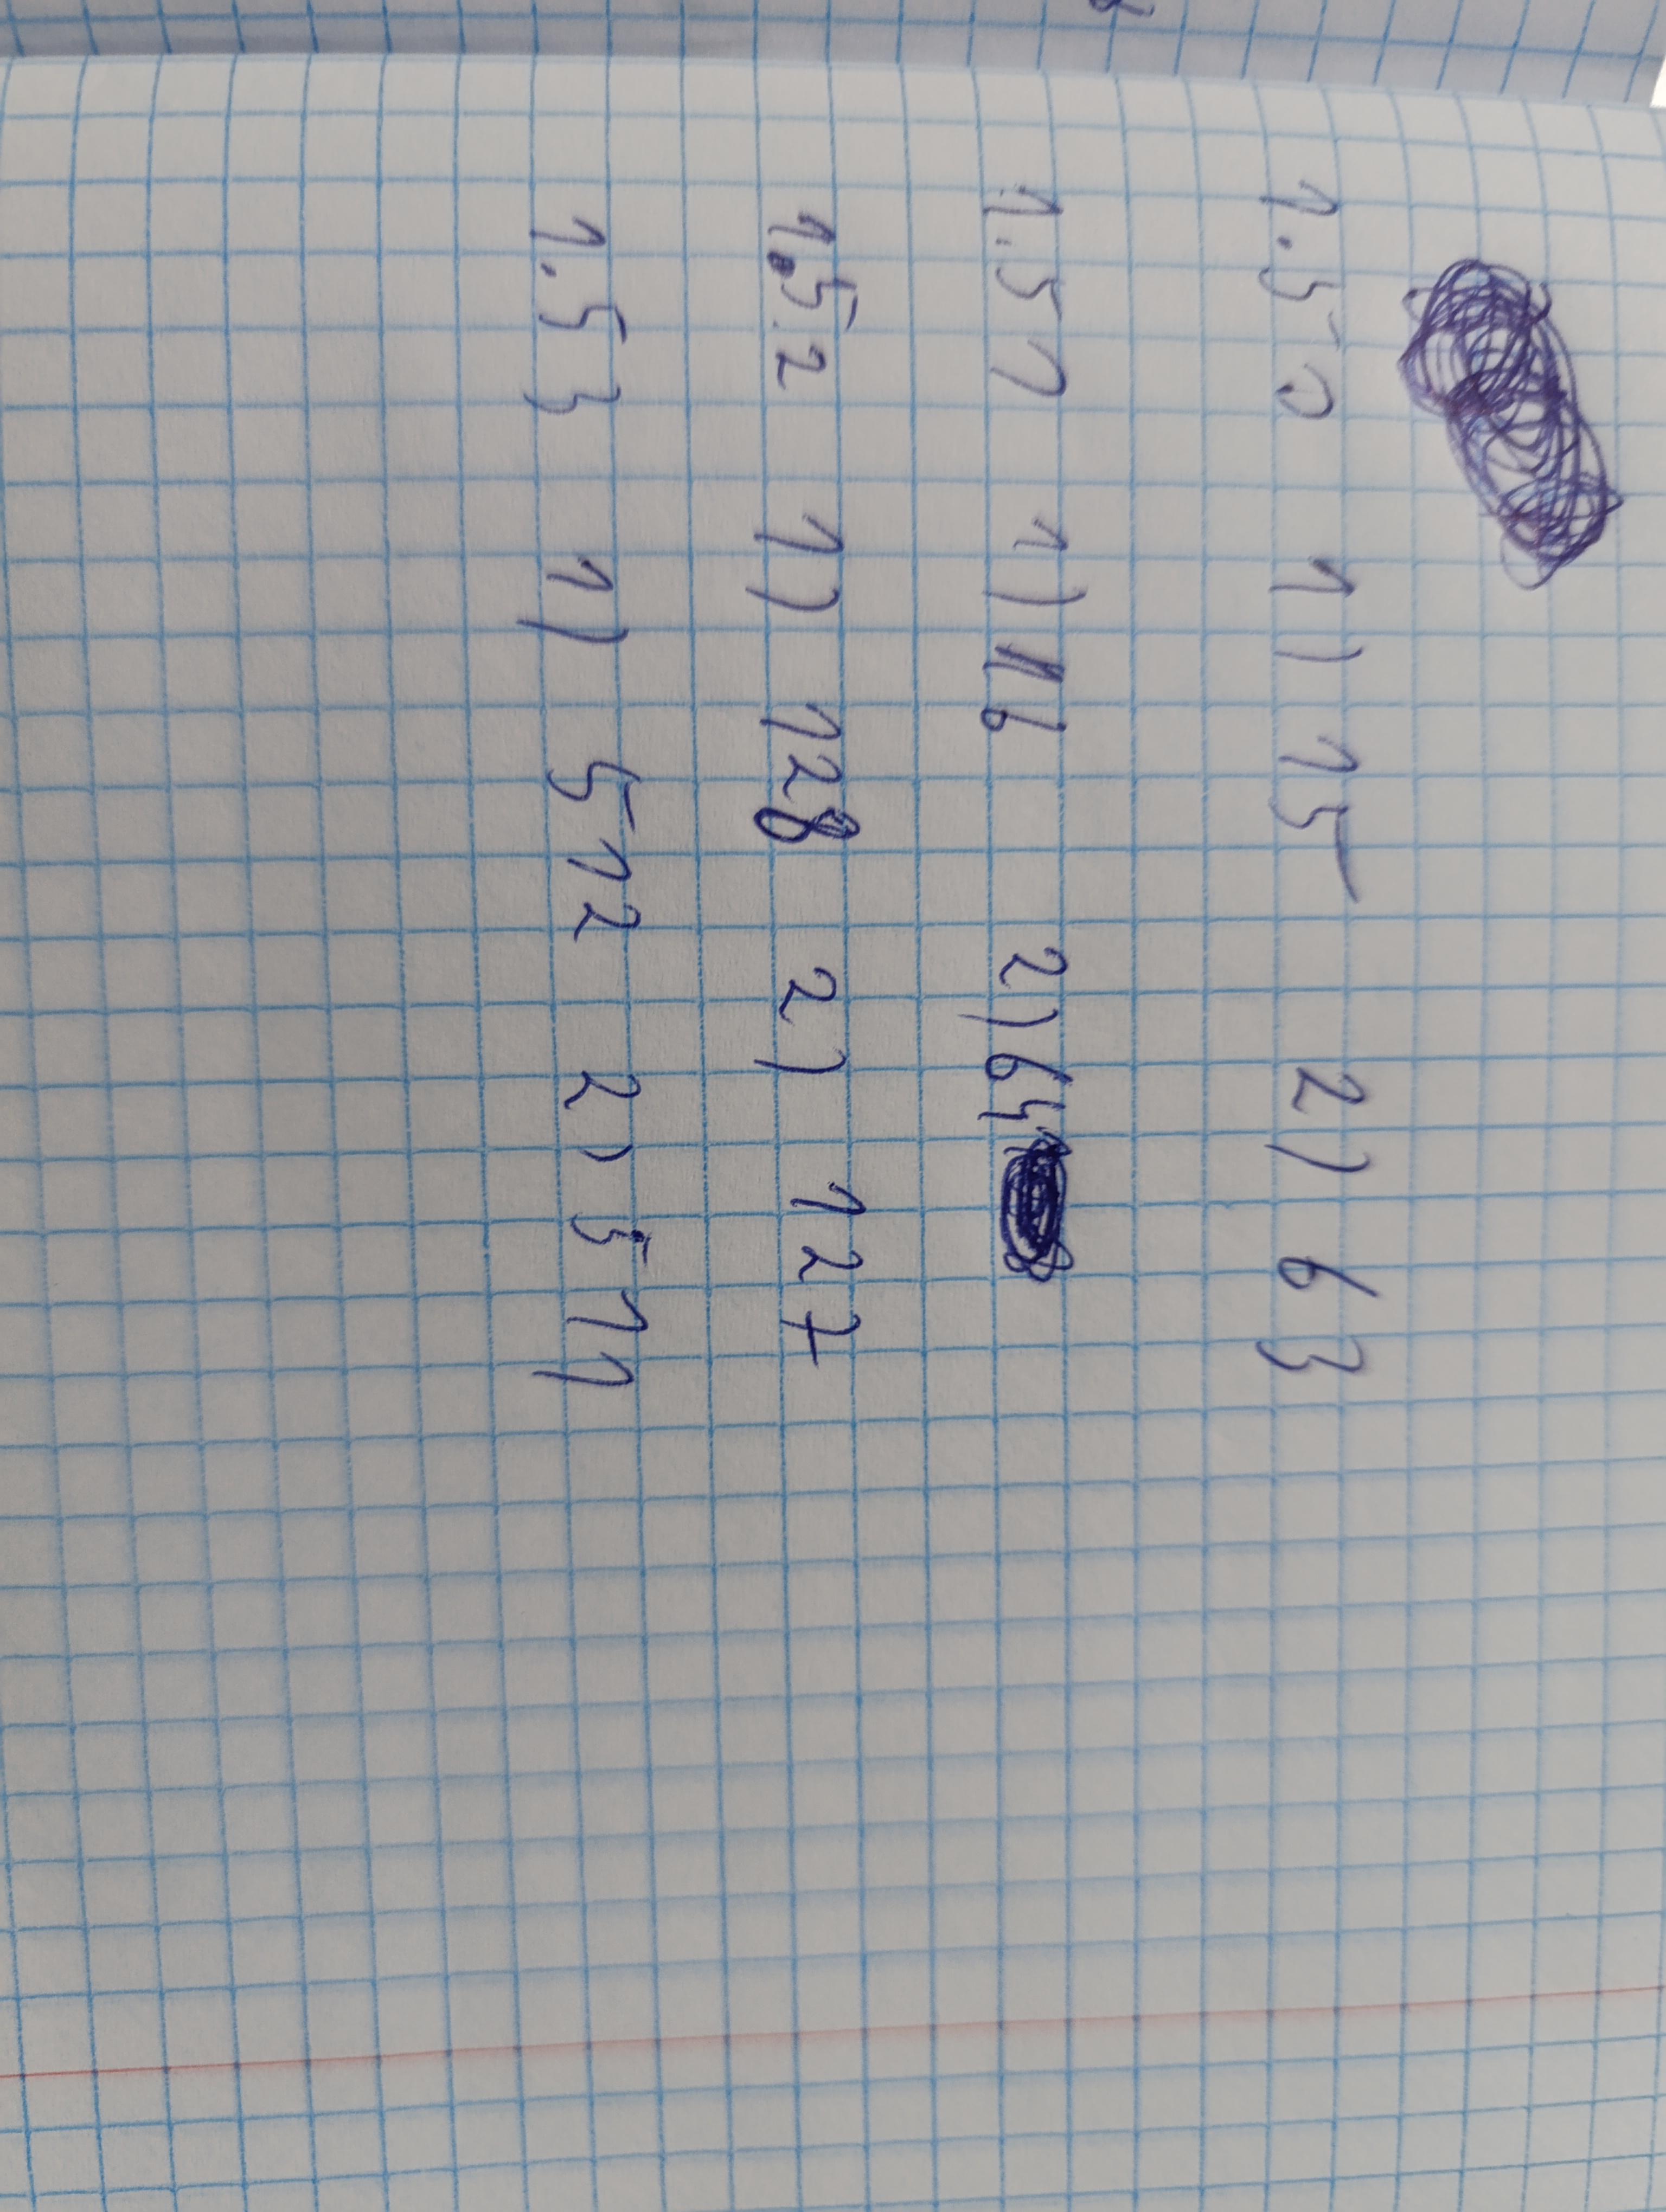 1.50 1) 15 2) 63
1.51 1) 16 2) 64
1.52 1) 128 2) 127
1.53 1) 512 2) 511